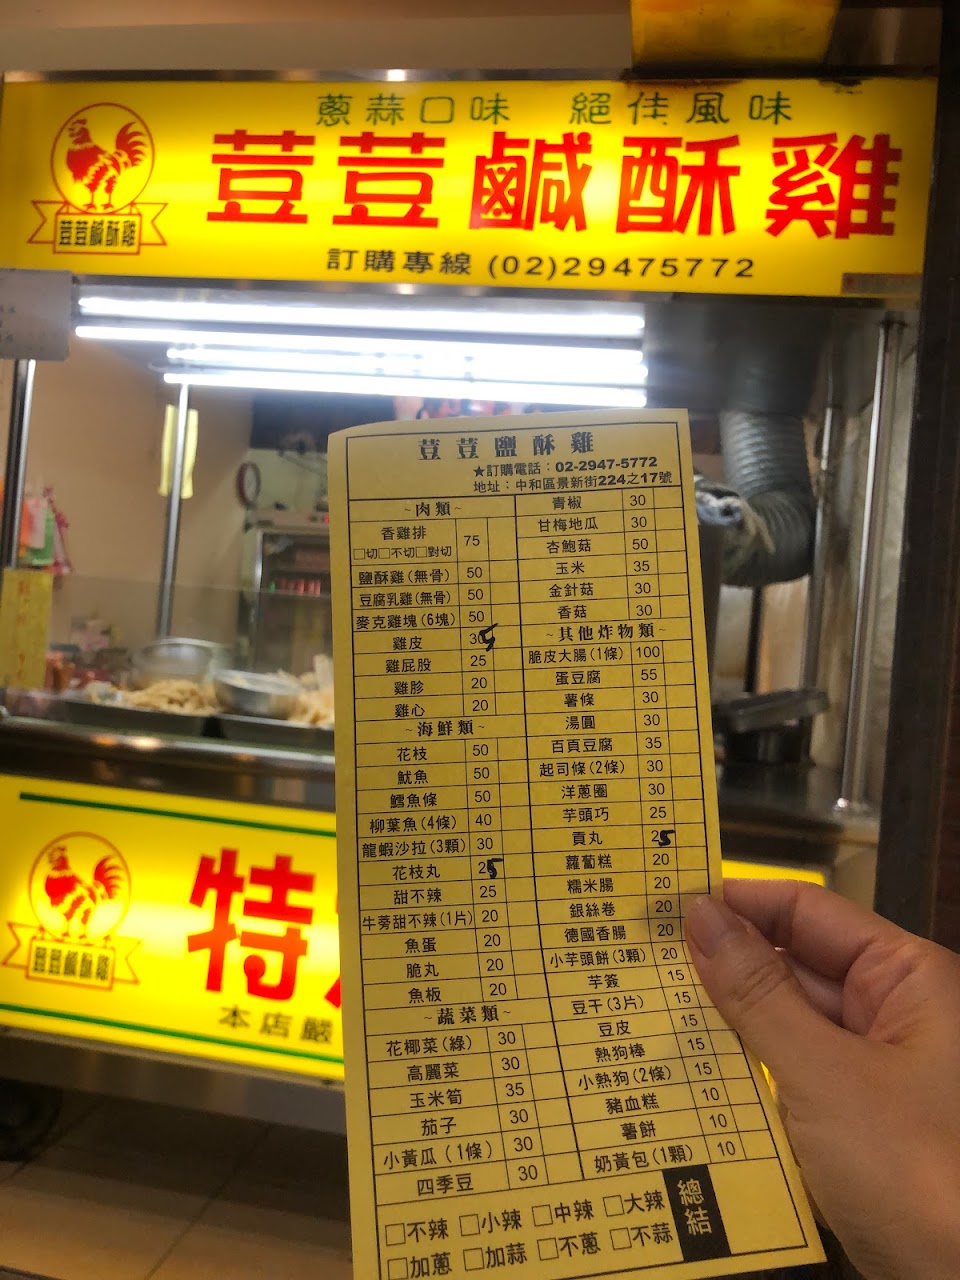 蔥蒜口味 絕佳風味
荳荳鹹酥雞
荳荳鹹酥雞
訂購專線 (02)29475772
荳荳鹽酥雞
★訂購電話：02-2947-5772
地址：中和區景新街224之17號
~肉類~
香雞排 75
□切□不切□對切
鹽酥雞(無骨) 50
豆腐乳雞(無骨) 50
麥克雞塊(6塊) 50
雞皮 30
雞屁股 25
雞胗 20
雞心 20
~海鮮類~
花枝 50
魷魚 50
鱈魚條 50
柳葉魚(4條) 40
龍蝦沙拉(3顆) 30
花枝丸 25
甜不辣 25
牛蒡甜不辣(1片) 20
魚蛋 20
脆丸 20
魚板 20
~蔬菜類~
花椰菜(綠) 30
高麗菜 30
玉米筍 35
茄子 30
小黃瓜(1條) 30
四季豆 30
青椒 30
甘梅地瓜 30
杏鮑菇 50
玉米 35
金針菇 30
香菇 30
~其他炸物類~
脆皮大腸(1條) 100
蛋豆腐 55
薯條 30
湯圓 30
百頁豆腐 35
起司條(2條) 30
洋蔥圈 30
芋頭巧 25
貢丸 25
蘿蔔糕 20
糯米腸 20
銀絲卷 20
德國香腸 20
小芋頭餅(3顆) 20
芋簽 15
豆干(3片) 15
豆皮 15
熱狗棒 15
小熱狗(2條) 15
豬血糕 10
薯餅 10
奶黃包(1顆) 10
□不辣 □小辣 □中辣 □大辣
□加蔥 □加蒜 □不蔥 □不蒜
總結
特
荳荳鹹酥雞
本店嚴